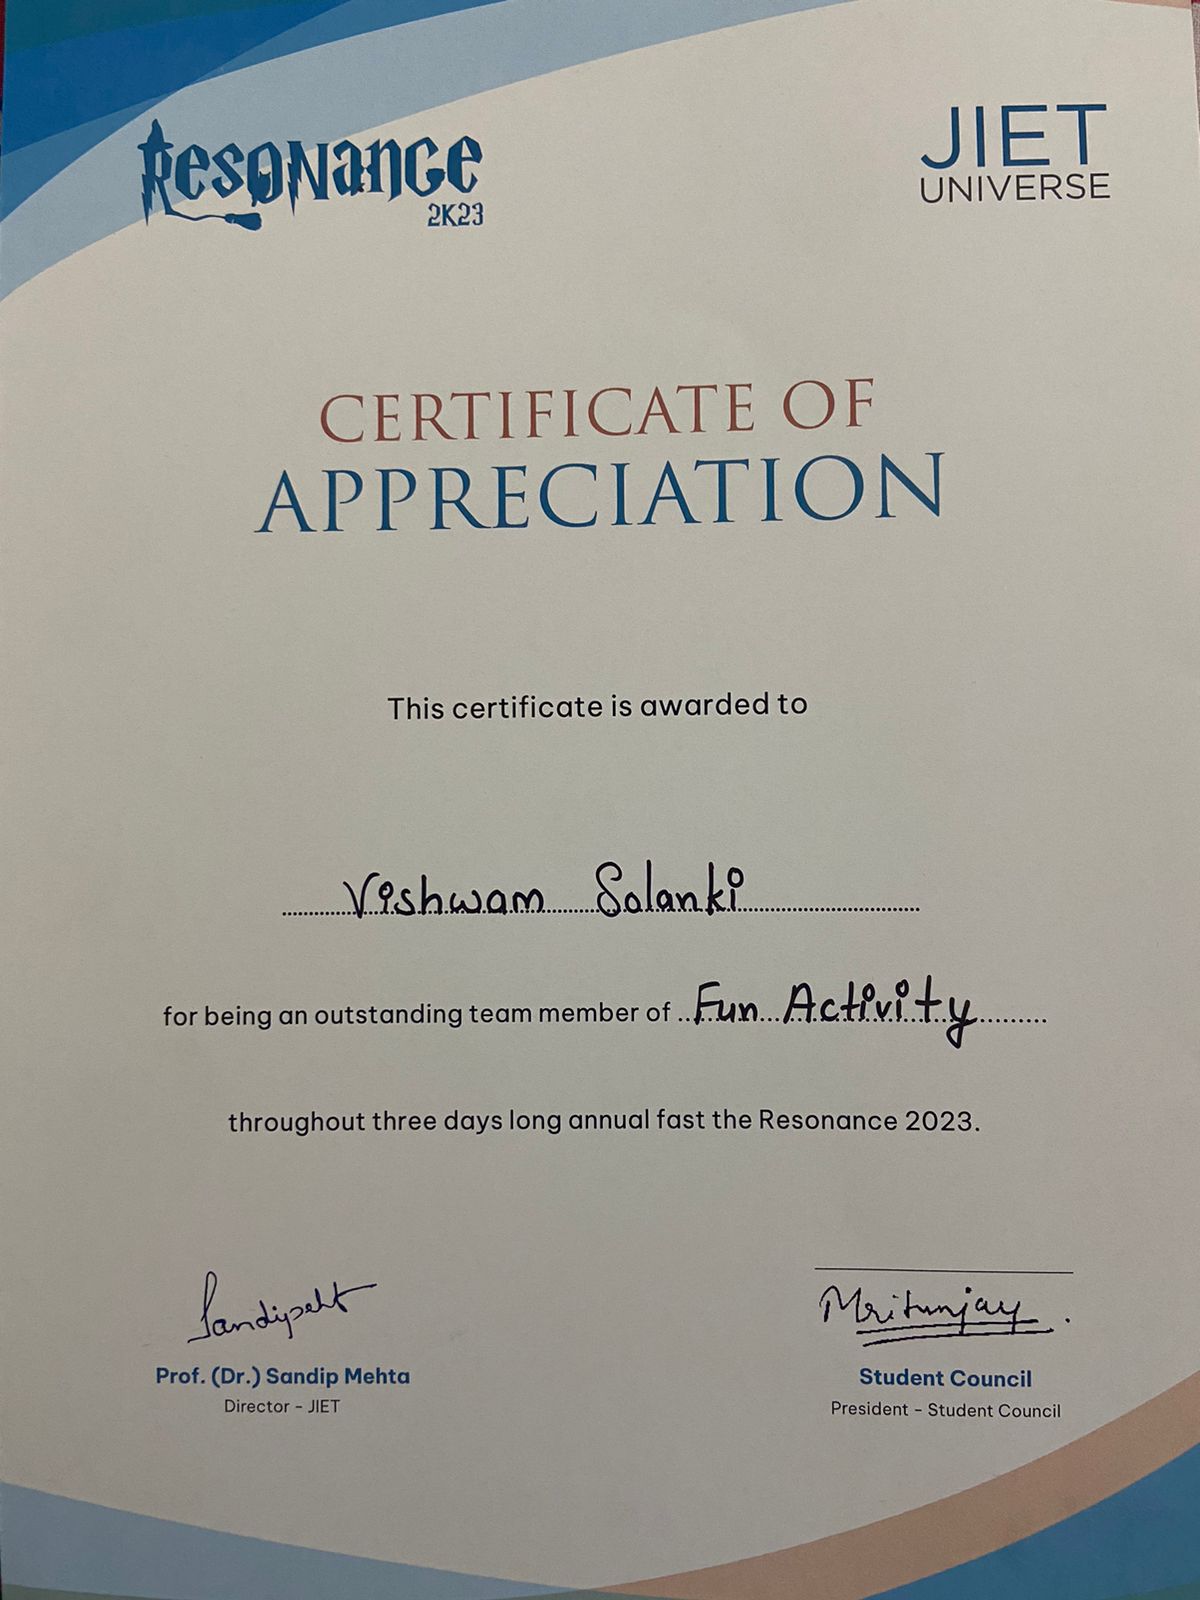 Resonance
2K23
JIET
UNIVERSE
CERTIFICATE OF
APPRECIATION
This certificate is awarded to
Vishwam Solanki
for being an outstanding team member of Fun Activity
throughout three days long annual fast the Resonance 2023.
Mritunjay
Prof. (Dr.) Sandip Mehta
Director - JIET
Student Council
President - Student Council